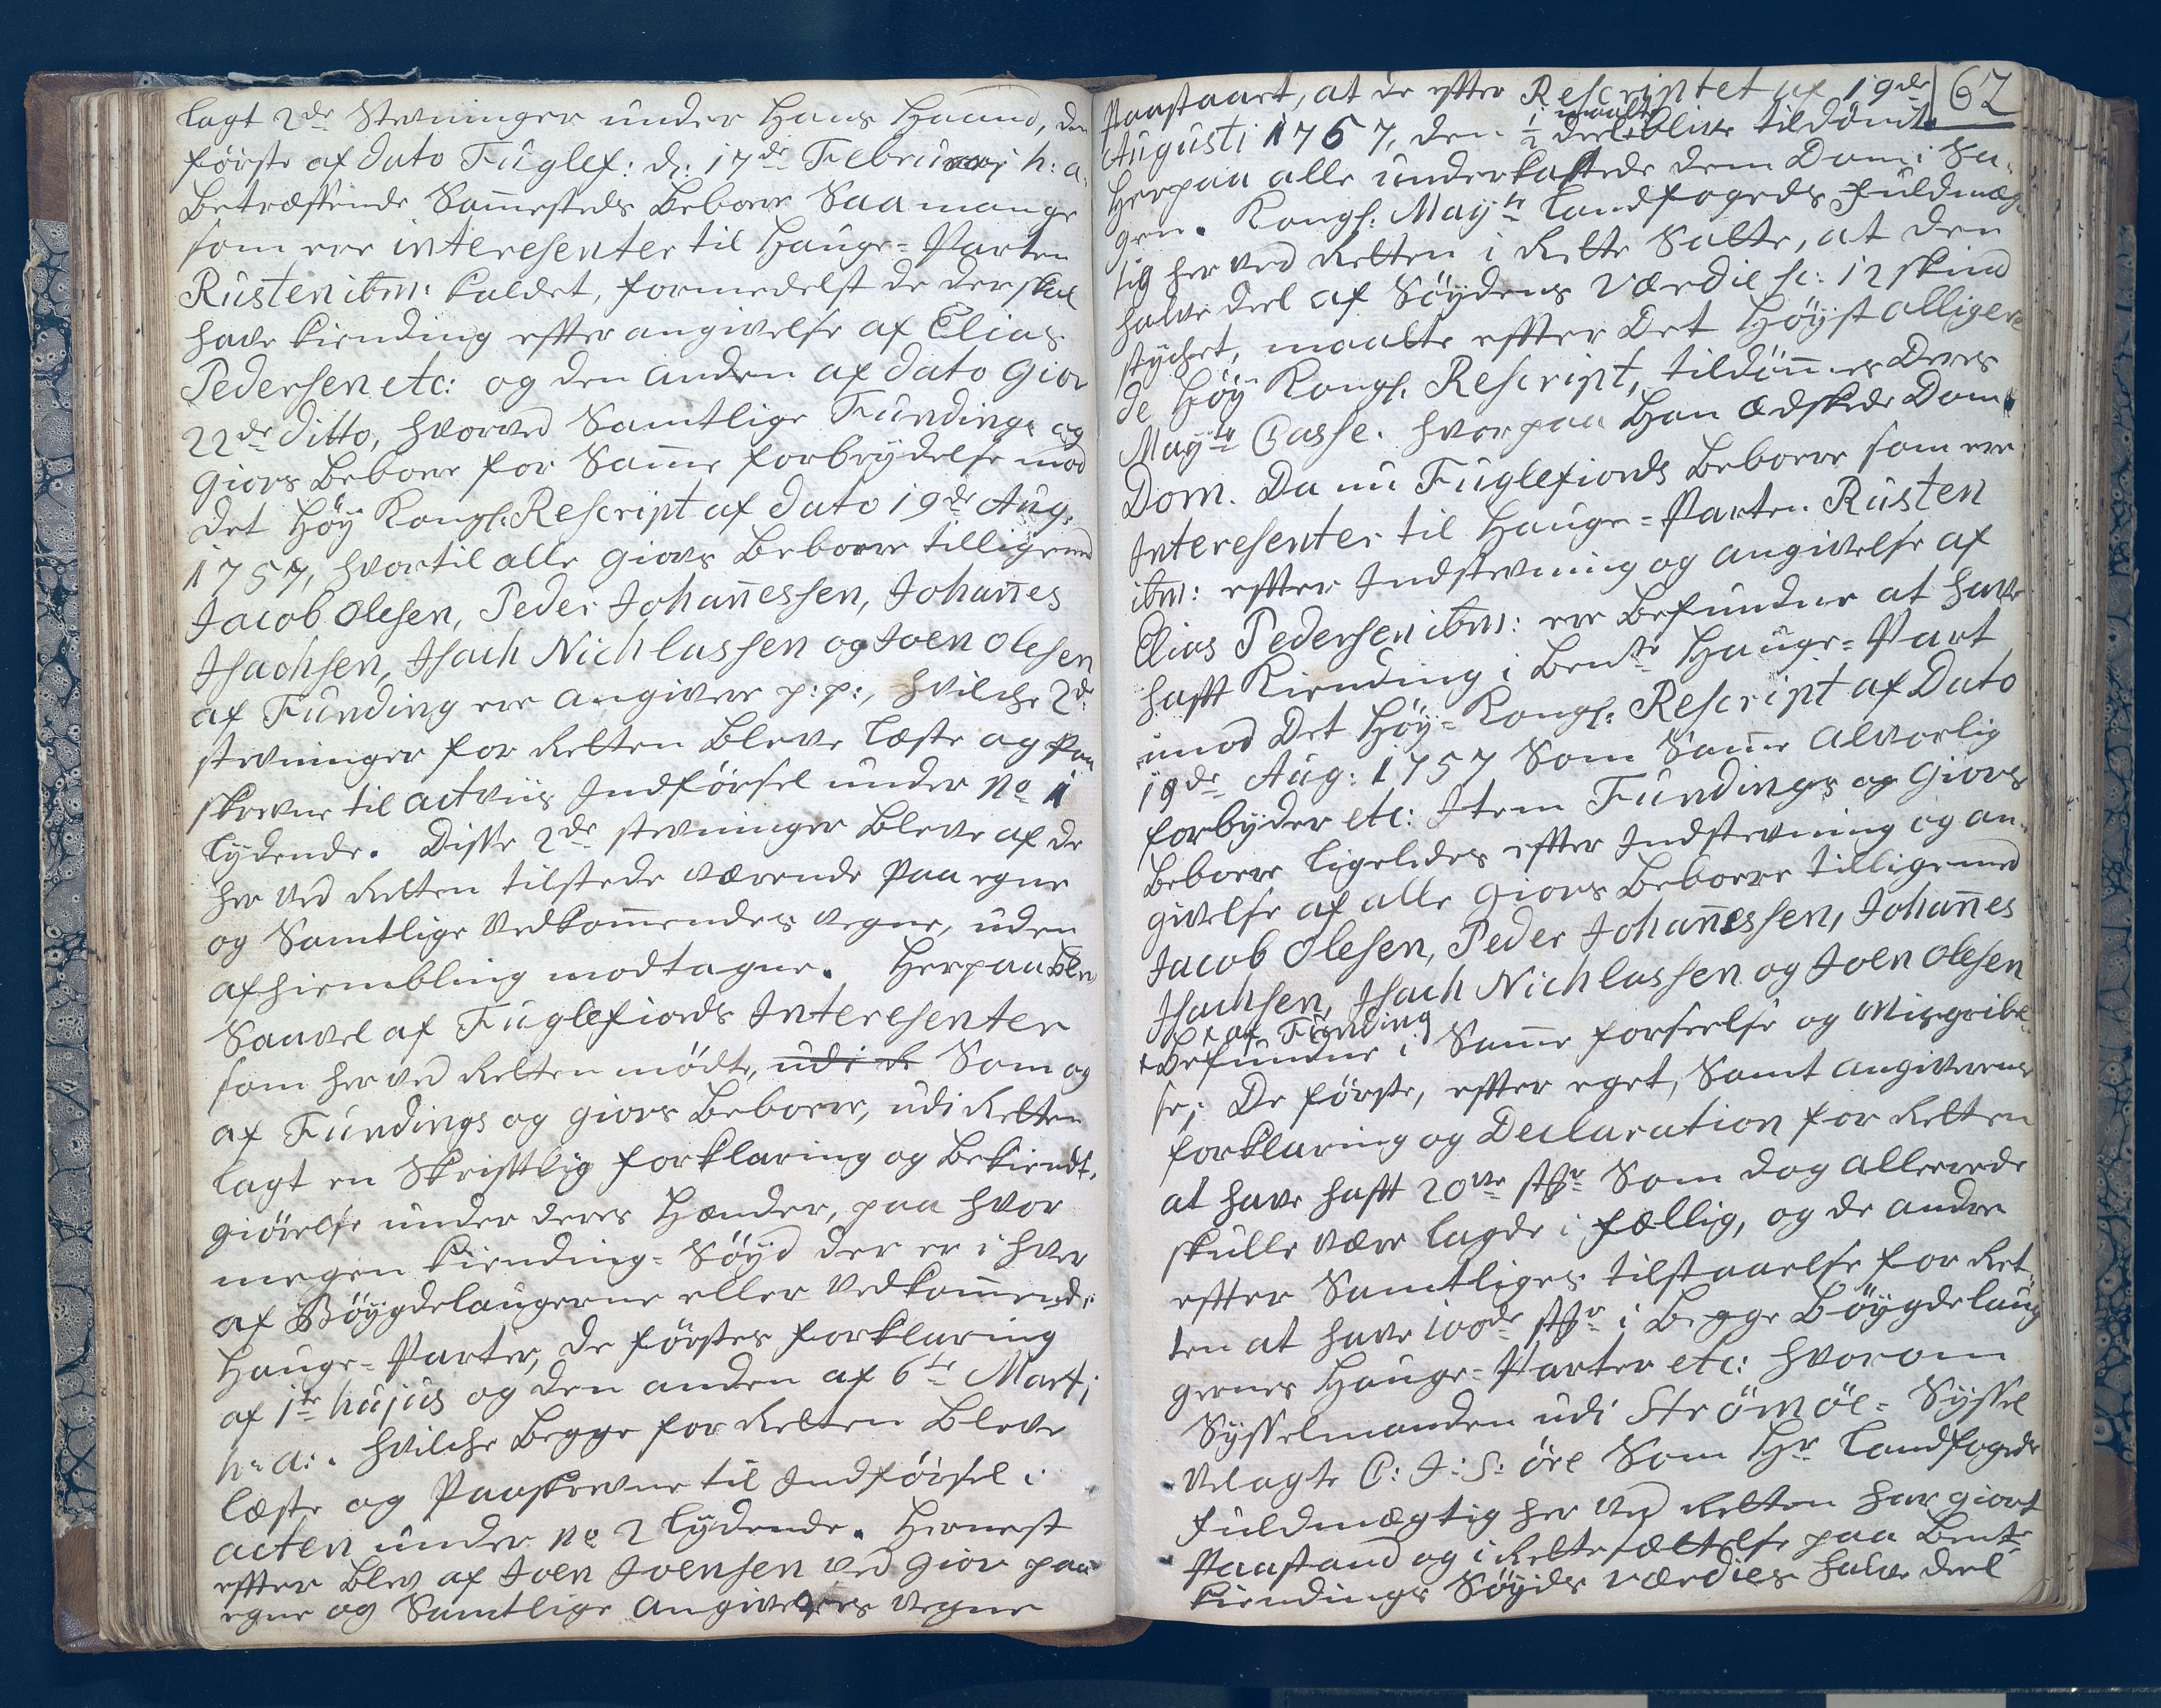 lagt 2de Stevninger under Hans Haand, den
første af dato Fuglef: d: 17de Februarj h: a:
Betræffende Sammesteds Beboere Saa mange
som ere interesenter til Hauge-Parten
Rusten ibm: kaldet, formedelst de der skal
have kiending efter angivelse af Elias
Pedersen etc: og den anden af dato Giov
22de ditto, hvorved Samtlige Fundings og
Giovs Beboere for Samme forbrydelse mod
det Høy Kongl: Rescript af dato 19de Aug:
1757, hvortil alle Giovs Beboere tilligemed
Jacob Olesen, Peder Johannessen, Johannes
Jsachsen, Jsach Nichlassen og Joen Olesen
af Funding ere angivere p: p:, hvilche 2de
stevninger for Retten Bleve læste og Paa
skrevne til actens Indførsel under No 1
lydende. Disse 2de stevninger Bleve af de
her ved Retten tilstede værende Paa egne
og Samtlige Vedkommendes vegne, uden
afhiembling modtagne. Herpaa Blev
Saavel af Fuglefiords Interesenter
som her ved Retten mødte, udi de Som og
af Fundings og Giovs Beboere, udi Retten
lagt en Skriftlig forklaring og Bekiendt-
giørelse under deres Hænder, paa hvor
megen kiending-Søyd der er i hver
af Bøygdelaugerne eller Vedkommende
Hauge-Parter, de førstes forklaring
af 1te hujus og den anden af 6te Martj
h: a:. hvilche Begge for Retten Bleve
læste og Paaskrevne til Indførsel i
acten under No 2 lydende. Hernest
efter Blev af Joen Joensen ved Giov paa
egne og Samtlige Angiveres vegne
62
Paastaaet, at de efter Rescriptet af 19de
maatte
Augusti 1757, den ½ deel blive tildømt.
Herpaa alle underkastede dem Dom i Sa-
gen. Kongl: Mayts Landfogeds Fuldmæg-
tig her ved Retten i Rette Satte, at den
halve deel af Søydens Værdie sc: 12 skind
stychet, maatte efter Det Høystalligeve
de Høy Kongl: Rescript, tildømmes Deres
Mayts Casse. hvorpaa Han Ædskede Dom.
Dom. Da nu Fuglefiords Beboere som ere
Interesenter til Hauge-Parten Rusten
ibm: efter Indstevning og angivelse af
Elias Pedersen ibm: ere Befundne at have
haft Kiending i Bente Hauge-Part
imod Det Høy-Kongl: Rescript af Dato
19de Aug: 1757 Som Samme Alvorlig
forbyder etc: Item Fundings og Giovs
Beboere ligeledes efter Indstevning og an-
givelse af alle Giovs Beboere tilligemed
Jacob Olesen, Peder Johannessen, Johannes
Jsachsen, Jsach Nichlassen og Joen Olesen
+ af Funding
+ Befundne i Samme forseelse og Misgribel-
se; De første, efter eget, Samt Angiverens
forklaring og Declaration for Retten
at have haft 20ve st: Som dog allerede
skulle være lagde i fællig, og de andre
efter Samtliges tilstaaelse for Ret-
ten at have 100de st: i Begge Bøygdelaug
gernes Hauge-Parter etc: hvorom
Sysselmanden udi Strømøe-Syssel
Velagte C: J: S: øre Som Hr Landfogeds
Fuldmægtig her ved Retten har giort
Paastand og i Rettesættelse paa Bente
Kiendings Søyds Værdies halve deel